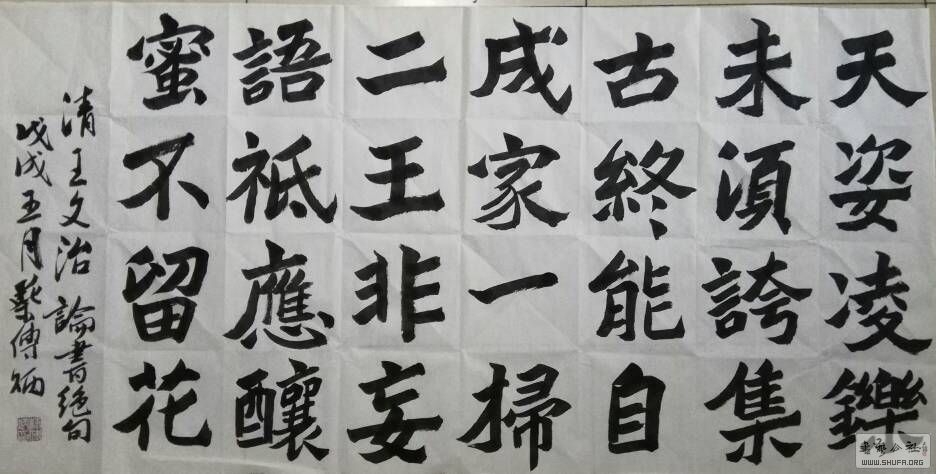 天姿凌鑠
未須誇集
古終能自
成家一掃
二王非妄
語祗應釀
蜜不留花
清王文治論書絕句
戊戌五月
WWW.SHUFA.ORG